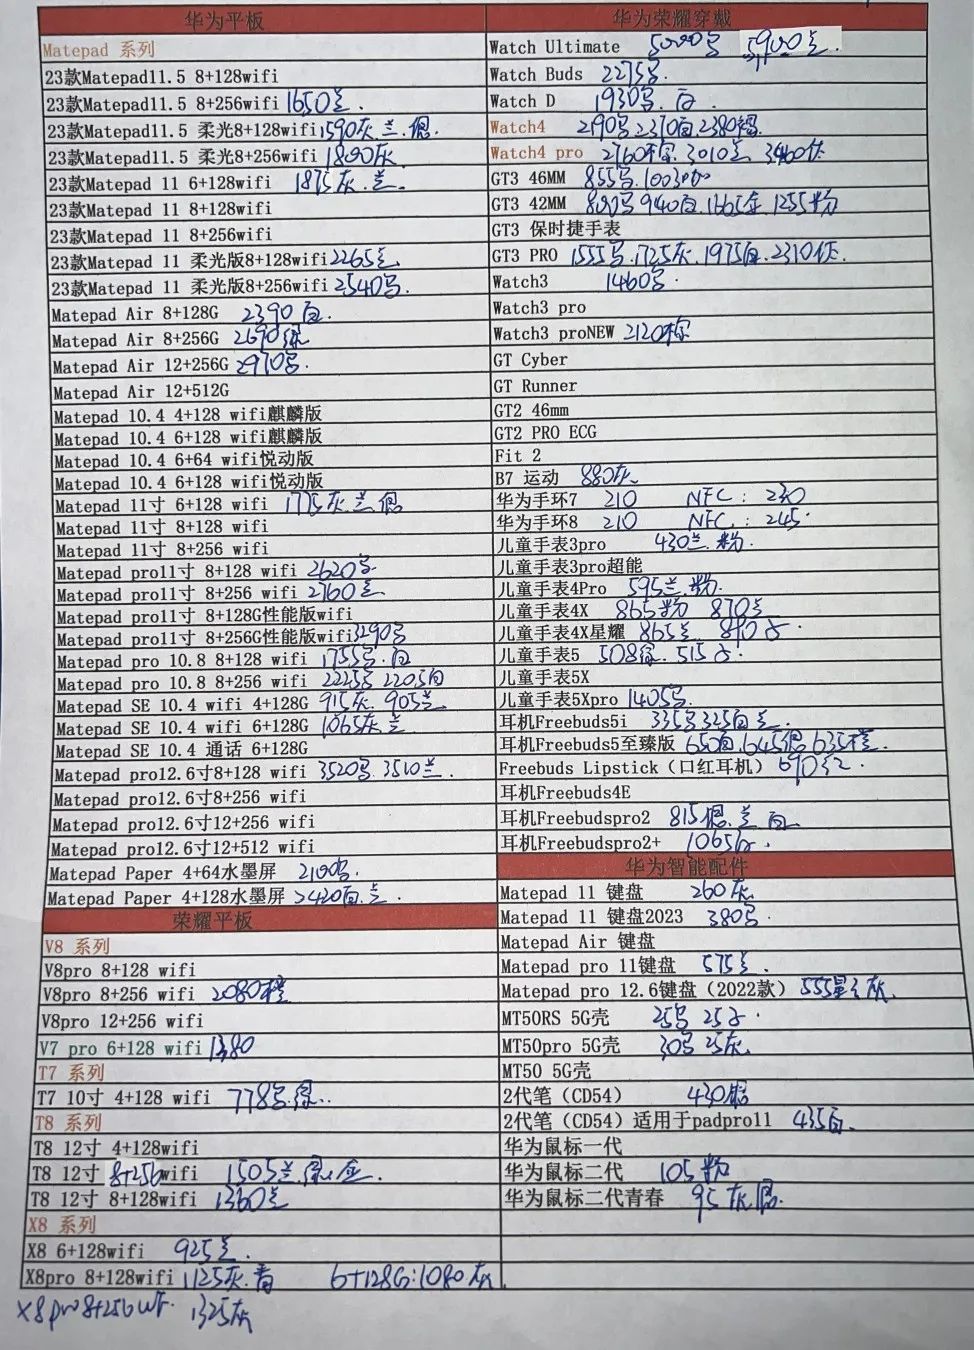 华为平板
Matepad 系列
23款Matepad11.5 8+128wifi
23款Matepad11.5 8+256wifi 1650兰.
23款Matepad11.5 柔光8+128wifi 1590灰.兰.
23款Matepad11.5 柔光8+256wifi 1800灰
23款Matepad 11 6+128wifi 1875灰.兰.
23款Matepad 11 8+128wifi
23款Matepad 11 8+256wifi
23款Matepad 11 柔光版8+128wifi 2265兰.
23款Matepad 11 柔光版8+256wifi 2540
Matepad Air 8+128G 2390白.
Matepad Air 8+256G 2690绿
Matepad Air 12+256G 2970
Matepad Air 12+512G
Matepad 10.4 4+128 wifi麒麟版
Matepad 10.4 6+128 wifi麒麟版
Matepad 10.4 6+64 wifi悦动版
Matepad 10.4 6+128 wifi悦动版
Matepad 11寸 6+128 wifi 1775灰.兰
Matepad 11寸 8+128 wifi
Matepad 11寸 8+256 wifi
Matepad pro11寸 8+128 wifi 2620
Matepad pro11寸 8+256 wifi 2760兰.
Matepad pro11寸 8+128G性能版wifi
Matepad pro11寸 8+256G性能版wifi 3290
Matepad pro 10.8 8+128 wifi 1755 白
Matepad pro 10.8 8+256 wifi 2225 2205白
Matepad SE 10.4 wifi 4+128G 915灰. 905兰
Matepad SE 10.4 wifi 6+128G 1065灰 兰
Matepad SE 10.4 通话 6+128G
Matepad pro12.6寸8+128 wifi 3520 3510兰.
Matepad pro12.6寸8+256 wifi
Matepad pro12.6寸12+256 wifi
Matepad pro12.6寸12+512 wifi
Matepad Paper 4+64水墨屏 2100
Matepad Paper 4+128水墨屏 2420 兰.
荣耀平板
V8 系列
V8pro 8+128 wifi
V8pro 8+256 wifi 2080橙
V8pro 12+256 wifi
V7 pro 6+128 wifi 1380
T7 系列
T7 10寸 4+128 wifi 778
T8 系列
T8 12寸 4+128wifi
T8 12寸 8+256wifi 1505兰
T8 12寸 8+128wifi 1360兰
X8 系列
X8 6+128wifi 925兰.
X8pro 8+128wifi 1125灰.青 6+128G:1080灰
X8pro 8+256 WF. 1325灰
华为荣耀穿戴
Watch Ultimate 5000 5900兰.
Watch Buds 2275
Watch D 1930 白
Watch4 2190 2370白 2380棕
Watch4 pro 2760棕 3010兰 3460
GT3 46MM 855 1003
GT3 42MM 800 940白 1665金 1255粉
GT3 保时捷手表
GT3 PRO 1555 1725灰 1975白 2310
Watch3 1460
Watch3 pro
Watch3 proNEW 2120棕
GT Cyber
GT Runner
GT2 46mm
GT2 PRO ECG
Fit 2
B7 运动 880灰
华为手环7 210 NFC: 230
华为手环8 210 NFC: 245
儿童手表3pro 430兰.粉.
儿童手表3pro超能
儿童手表4Pro 595兰.粉.
儿童手表4X 865粉 870兰
儿童手表4X星耀 865兰 890
儿童手表5 508 515
儿童手表5X
儿童手表5Xpro 1405
耳机Freebuds5i 335 325白兰.
耳机Freebuds5至臻版 650白 645 635橙.
Freebuds Lipstick（口红耳机）690红
耳机Freebuds4E
耳机Freebudspro2 815 兰 白
耳机Freebudspro2+ 1065
华为智能配件
Matepad 11 键盘 260灰
Matepad 11 键盘2023 380
Matepad Air 键盘
Matepad pro 11键盘 575兰.
Matepad pro 12.6键盘（2022款）555 灰.
MT50RS 5G壳 25 25
MT50pro 5G壳 30 25灰.
MT50 5G壳
2代笔（CD54） 430
2代笔（CD54）适用于padpro11 435白.
华为鼠标一代
华为鼠标二代 105粉
华为鼠标二代青春 95灰